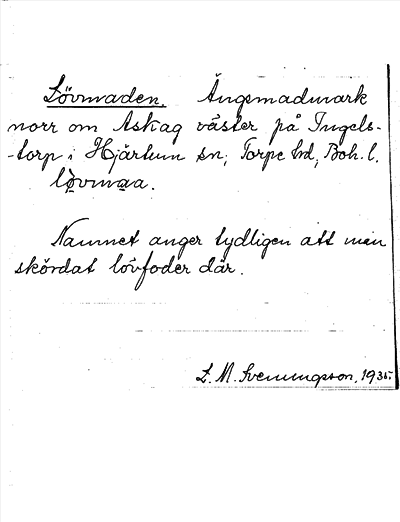 Lövmaden. Ängsmadmark
norr om Askag väster på Ingels-
-torp i Hjärtum sn, Torpe hd, Boh. l.
lövmaa.
Namnet anger tydligen att man
skördat lövfoder där.
L. M. Svenungsson, 1935.